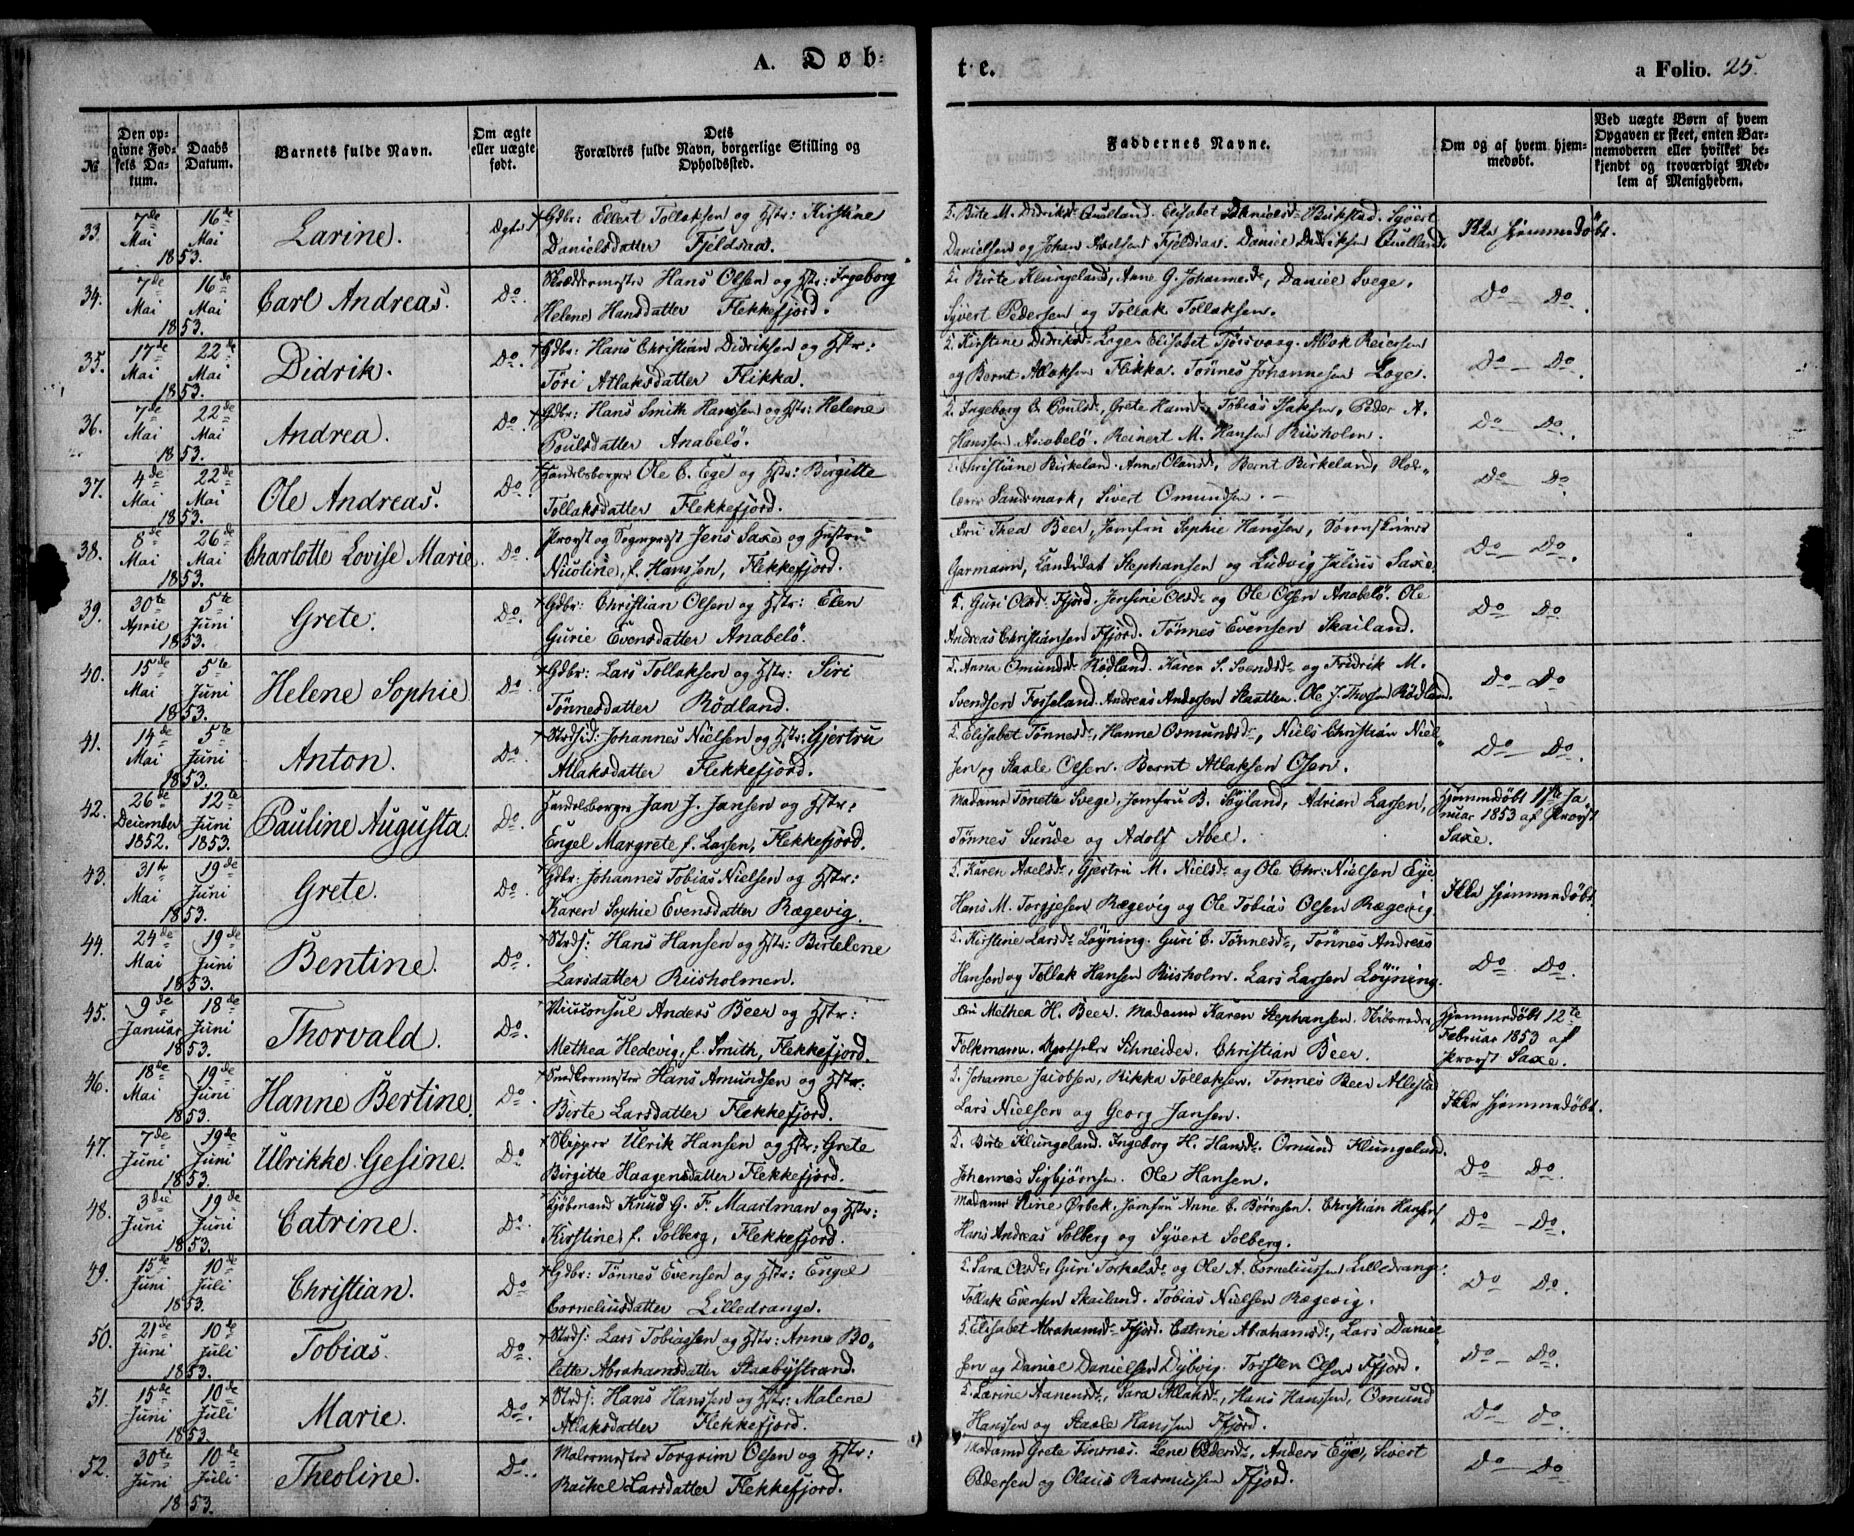 A. Døb-
te.
a Folio. 25.
№
Den op-
givne Fød-
sels Da-
tum.
Daabs
Datum.
Barnets fulde Navn.
Om ægte
eller uægte
født.
Dets
Forældres fulde Navn, borgerlige Stilling og
Opholdssted.
Faddernes Navne.
Om og af hvem hjem-
medøbt.
Ved uægte Børn af hvem
Opgaven er skeet, enten Bar-
nemoderen eller hvilket be-
kjendt og troværdigt Med-
lem af Menigheden.
33. 7de Mai 1853. 16de Mai Larine. Ægte Gdbr: Ellert Tollaksen og Hstr: Kirstine
Danielsdatter Fjeldsaa.
Birte M. Didriksd. Quelland. Elisabet Danielsd. Birkstad. Syvert
Danielsen og Johan Axelsen Fjeldsaa. Daniel Didriksen Quelland.
Ikke Hjemmedøbt.
34. 7de Mai 1853. 16de Mai Carl Andreas. Do. Skræddermester Hans Olsen og Hstr: Ingeborg
Helene Hansdatter Flekkefjord.
Birte Klungeland, Anne G. Johannesd., Daniel Svege,
Syvert Pedersen og Tollak Tollaksen.
Do — Do.
35. 17de Mai 1853. 22de Mai Didrik. Do. Gdbr: Hans Christian Didriksen og Hstr:
Töri Atlaksdatter Flikka.
Kirstine Didriksd. Loge. Elisabet Tjørsvaag. Aslak Reiersen
og Bernt Atlaksen Flikka. Tønnes Johannesen Loge.
Do — Do.
36. 7de Mai 1853. 22de Mai Andrea. Do. Gdbr: Hans Smith Hanssen og Hstr: Helene
Poulsdatter Anabelö.
Ingeborg C. Poulsd., Grete Hansd., Tobias Isaksen, Peder A.
Hanssen Anabelö. Reinert M. Hansen Riisholm.
Do Do.
37. 4de Mai 1853. 22de Mai Ole Andreas. Do. Handelsborger Ole C. Ege og Hstr: Birgitte
Tollaksdatter Flekkefjord.
Christine Birkeland. Anne Olausd., Bernt Birkeland,
Sandsmark, Sivert Omundsen. —
Do — Do.
38. 8de Mai 1853. 26de Mai Charlotte Lovise Marie. Do. Provst og Sogneprest Jens Saxe og Hustru
Nicoline, f. Hanssen, Flekkefjord.
Fru Thea Beer, Jomfru Sophie Hanssen, Sorenskriver
Garmann, Candidat Stephansen og Ludvig Julius Saxe.
Do — Do.
39. 30te April 1853. 5te Juni Grete. Do. Gdbr: Christian Olsen og Hstr: Elen
Gurie Evensdatter Anabelö.
Guri Olsd. Fjord. Jensine Olsd. og Ole Olsen Anabelö. Ole
Andreas Christiansen Ffjord. Tønnes Evensen Skailand.
Do Do.
40. 15de Mai 1853. 5te Juni Helene Sophie Do. Gdbr: Lars Tollaksen og Hstr: Siri
Tönnesdatter Rödland.
Anna Omundsd. Rödland. Karen S. Svendsd. og Fridrik M.
Svendsen Forseland. Andreas Andersen Slaatten. Ole J. Thorsen Rödland.
Do — Do
41. 14de Mai 1853. 5te Juni Anton. Do. Strdsid: Johannes Nielsen og Hstr: Gjertru
Atlaksdatter Flekkefjord.
Elisabet Tønnesd., Hanne Osmundsd., Niels Christian Niel-
sen og Staale Olsen. Bernt Atlaksen Osen.
Do — Do.
42. 26de December 1852. 12te Juni 1853. Pauline Augusta. Do. Handelsborger Jan J. Jansen og Hstr:
Engel Margrete f. Larsen, Flekkefjord.
Madame Tonette Svege, Jomfru B. Söyland, Adrian Larsen,
Tønnes Sunde og Adolf Abel.
Hjemmedøbt 17de Ja-
nuar 1853 af Provst
Saxe.
43. 31te Mai 1853. 19de Juni Grete. Do. Gdbr: Johannes Tobias Nielsen og Hstr:
Karen Sophie Evensdatter Rægevig.
Karen Axelsd., Gjertru M. Nielsd. og Ole Chr: Nielsen Eye.
Hans M. Torgjesen Rægevig og Ole Tobias Olsen Rægevig.
Ikke Hjemmedøbt.
44. 24de Mai 1853. 19de Juni Bentine. Do. Strds: Hans Hansen og Hstr: Birtelene
Larsdatter Riisholmen.
Kirstine Larsd. Löyning. Guri C. Tønnesd., Tønnes Andreas
Hansen og Tollak Hansen Riisholm. Lars Larsen Löyning.
Do Do.
45. 9de Januar 1853. 18de Juni Thorvald. Do. Viceconsul Anders Beer og Hstr:
Methea Hedevig, f. Smith, Flekkefjord.
Fru Methea H. Beer. Madame Karen Stephansen. Skibsreder
Folkmann. Apotheker Schneider. Christian Beer.
Hjemmedøbt 12te
Februar 1853 af
Provst Saxe.
46. 18de Mai 1853. 19de Juni Hanne Bertine. Do. Snedkermester Hans Amundsen og Hstr:
Birte Larsdatter Flekkefjord.
Johanne Jacobsen, Rikka Tollaksen. Tønnes Beer Allestad
Lars Nielsen og Georg Jansen.
Ikke Hjemmedøbt.
47. 7de Juni 1853. 19de Juni Ulrikke Gesine. Do Skipper Ulrik Hansen og Hstr: Grete
Birgitte Haagensdatter Flekkefjord.
Birte Klungeland. Ingeborg H. Hansd. Omund Klungeland.
Johannes Sigbjørnsen. Ole Hansen.
Do Do.
48. 3die Juni 1853. 19de Juni Catrine. Do. Kjøbmand Knud G. F. Maartman og Hstr:
Kirstine f. Solberg, Flekkefjord.
Madame Stine Ørbek. Jomfru Anne C. Börresen. Christian Hansen,
Hans Andreas Solberg og Syvert Solberg.
Do — Do.
49. 15de Juni 1853. 10de Juli Christian. Do. Gdbr: Tønnes Evensen og Hstr: Engel
Corneliusdatter Lilledrange.
Sara Olsd., Guri Torkelsd. og Ole A. Corneliussen Lilledrange.
Tollak Evensen Skailand. Tobias Nielsen Rægevig.
Do Do.
50. 21de Juni 1853. 10te Juli Tobias. Do. Strds: Lars Tobiassen og Hstr: Anne Bo-
lette Abrahamsdatter Staabystrand.
Elisabet Abrahamsd. Ffjord. Catrine Abrahamsd., Lars Daniel-
sen og Daniel Danielsen Dybvig. Torsten Olsen Ffjord.
Do — Do.
51. 15de Juni 1853. 10de Juli Marie. Do. Strds: Hans Hanssen og Hstr: Malene
Atlaksdatter Flekkefjord.
Larine Aanensd., Sara Atlaksd., Hans Hanssen, Omund
Hanssen og Staale Hanssen Ffjord.
Do Do.
52. 30te Juni 1853. 10de Juli Theoline. Do. Malermester Torgrim Olsen og Hstr:
Rachel Larsdatter Flekkefjord.
Madame Grete Finsnes. Lene Pedersd., Anders Eye, Sivert
Pedersen og Olaus Rasmussen Ffjord.
Do — Do.